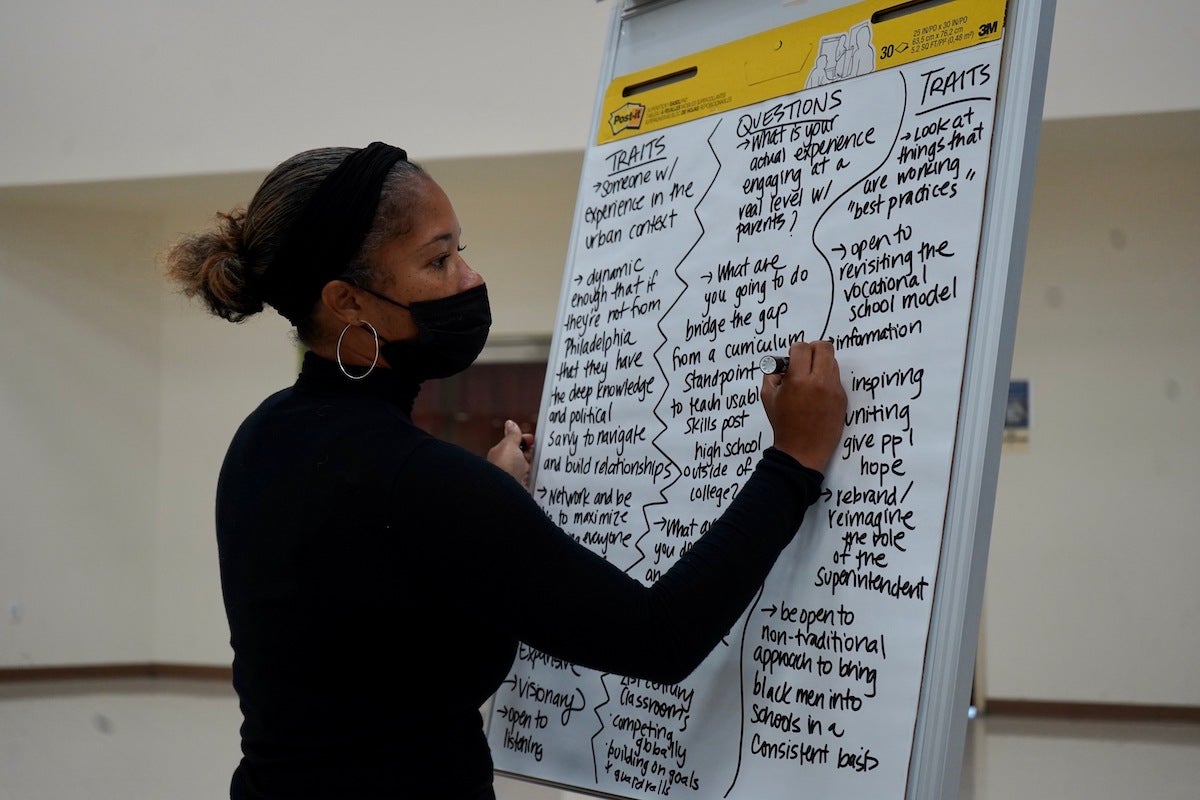 Post-it
30
25 IN/PO x 30 IN/PO
63,5 cm x 76,2 cm
5.2 SQ FT/PI² (0,48 m²)
3M
TRAITS
→Someone w/
experience in the
urban context
→dynamic
enough that if
they're not from
Philadelphia
that they have
the deep knowledge
and political
savvy to navigate
and build relationships
→Network and be
to maximize
everyone
Expansive
→Visionary
→open to
listening
QUESTIONS
→What is your
actual experience
engaging at a
real level w/
parents?
→What are
you going to do
bridge the gap
from a curriculum
standpoint
to teach usable
skills post
high school
outside of
college?
→What are
you do
an
21st century
classrooms
·competing
globally
·building on goals
+ guardrails
TRAITS
→Look at
things that
are working
"best practices"
→open to
revisiting the
vocational
school model
→information
inspiring
uniting
give ppl
hope
→rebrand/
reimagine
the role
of the
Superintendent
→be open to
non-traditional
approach to bring
black men into
schools in a
consistent basis